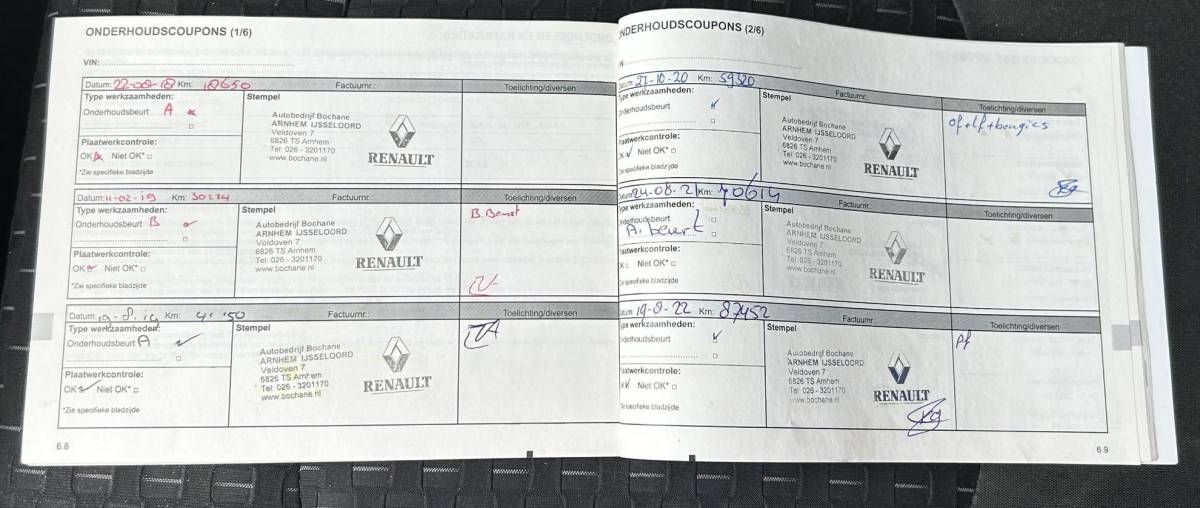 ONDERHOUDSCOUPONS (1/6)
VIN:
Datum: 22-08-18 Km: 18650 Factuurnr.: Toelichting/diversen
Type werkzaamheden: Stempel
Onderhoudsbeurt A
Autobedrijf Bochane
ARNHEM IJSSELOORD
Veldoven 7
6826 TS Arnhem
Tel: 026 - 3201170
www.bochane.nl
RENAULT
Plaatwerkcontrole:
OK Niet OK*
*Zie specifieke bladzijde
Datum: 11-02-19 Km: 30274 Factuurnr.: Toelichting/diversen
Type werkzaamheden: Stempel
Onderhoudsbeurt B
Autobedrijf Bochane
ARNHEM IJSSELOORD
Veldoven 7
6826 TS Arnhem
Tel: 026 - 3201170
www.bochane.nl
RENAULT
B. Beurt
Plaatwerkcontrole:
OK Niet OK*
*Zie specifieke bladzijde
Datum: 19-8-19 Km: Factuurnr.: Toelichting/diversen
Type werkzaamheden: Stempel
Onderhoudsbeurt A
Autobedrijf Bochane
ARNHEM IJSSELOORD
Veldoven 7
6826 TS Arnhem
Tel: 026 - 3201170
www.bochane.nl
RENAULT
Plaatwerkcontrole:
OK Niet OK*
*Zie specifieke bladzijde
6.8
ONDERHOUDSCOUPONS (2/6)
Datum: 27-10-20 Km: 59320 Factuurnr.: Toelichting/diversen
Type werkzaamheden: Stempel
Onderhoudsbeurt
Autobedrijf Bochane
ARNHEM IJSSELOORD
Veldoven 7
6826 TS Arnhem
Tel: 026 - 3201170
www.bochane.nl
RENAULT
of+lf+bougies
Plaatwerkcontrole:
OK Niet OK*
Zie specifieke bladzijde
Datum: 24-08-21 Km: 70614 Factuurnr.: Toelichting/diversen
Type werkzaamheden: Stempel
Onderhoudsbeurt
A. beurt
Autobedrijf Bochane
ARNHEM IJSSELOORD
Veldoven 7
6826 TS Arnhem
Tel: 026 - 3201170
www.bochane.nl
RENAULT
Plaatwerkcontrole:
OK Niet OK*
Zie specifieke bladzijde
Datum: 19-8-22 Km: 87452 Factuurnr.: Toelichting/diversen
Type werkzaamheden: Stempel
Onderhoudsbeurt
Autobedrijf Bochane
ARNHEM IJSSELOORD
Veldoven 7
6826 TS Arnhem
Tel: 026 - 3201170
www.bochane.nl
RENAULT
Pf
Plaatwerkcontrole:
OK Niet OK*
Zie specifieke bladzijde
6.9